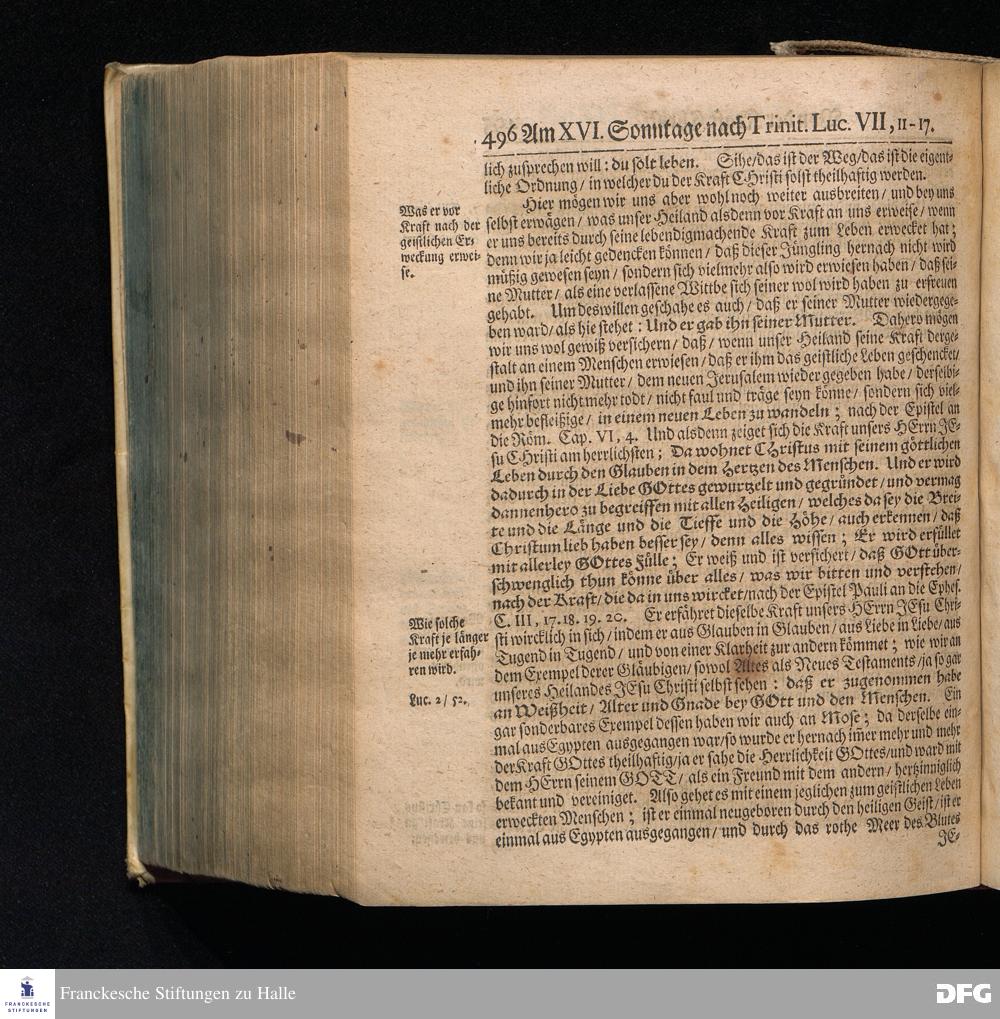 496 Am XVI. Sonntage nach Trinit. Luc. VII, 11-17.
lich zusprechen will: du solt leben. Sihe/das ist der Weg/das ist die eigent-
liche Ordnung/ in welcher du der Kraft CHristi solst theilhaftig werden.
Hier mögen wir uns aber wohl noch weiter ausbreiten/ und bey uns
selbst erwägen/ was unser Heiland alsdenn vor Kraft an uns erweise/ wenn
er uns bereits durch seine lebendigmachende Kraft zum Leben erwecket hat;
denn wir ja leicht gedencken können/ daß dieser Jüngling hernach nicht wird
müßig gewesen seyn/ sondern sich vielmehr also wird erwiesen haben/ daß sei-
ne Mutter/ als eine verlassene Wittbe sich seiner wol wird haben zu erfreuen
gehabt. Um deswillen geschahe es auch/ daß er seiner Mutter wiedergege-
ben ward/ als hie stehet: Und er gab ihn seiner Mutter. Dahero mögen
wir uns wol gewiß versichern/ daß/ wenn unser Heiland seine Kraft derge-
stalt an einem Menschen erwiesen/ daß er ihm das geistliche Leben geschencket/
und ihn seiner Mutter/ dem neuen Jerusalem wieder gegeben habe/ derselbi-
ge hinfort nicht mehr todt/ nicht faul und träge seyn könne/ sondern sich viel-
mehr befleißige/ in einem neuen Leben zu wandeln; nach der Epistel an
die Röm. Cap. VI, 4. Und alsdenn zeiget sich die Kraft unsers HErrn JE-
su CHristi am herrlichsten; Da wohnet CHristus mit seinem göttlichen
Leben durch den Glauben in dem Hertzen des Menschen. Und er wird
dadurch in der Liebe GOttes gewurtzelt und gegründet/ und vermag
dannenhero zu begreiffen mit allen Heiligen/ welches da sey die Brei-
te und die Länge und die Tieffe und die Höhe/ auch erkennen/ daß
Christum lieb haben besser sey/ denn alles wissen; Er wird erfüllet
mit allerley GOttes Fülle; Er weiß und ist versichert/ daß GOtt über-
schwenglich thun könne über alles/ was wir bitten und verstehen/
nach der Kraft/ die da in uns wircket/ nach der Epistel Pauli an die Ephes.
C. III, 17. 18. 19. 20. Er erfähret dieselbe Kraft unsers HErrn JEsu Chri-
sti wircklich in sich/ indem er aus Glauben in Glauben/ aus Liebe in Liebe/ aus
Tugend in Tugend/ und von einer Klarheit zur andern kömmet; wie wir an
dem Exempel derer Gläubigen/ sowol Altes als Neues Testaments/ ja so gar
unseres Heilandes JEsu Christi selbst sehen: daß er zugenommen habe
an Weißheit/ Alter und Gnade bey GOtt und den Menschen. Ein
gar sonderbares Exempel dessen haben wir auch an Mose; da derselbe ein-
mal aus Egypten ausgegangen war/ so wurde er hernach im̃er mehr und mehr
der Kraft GOttes theilhaftig/ ja er sahe die Herrlichkeit GOttes/ und ward mit
dem HErrn seinem GOTT/ als ein Freund mit dem andern/ hertzinniglich
bekant und vereiniget. Also gehet es mit einem jeglichen zum geistlichen Leben
erweckten Menschen; ist er einmal neugeboren durch den heiligen Geist/ ist er
einmal aus Egypten ausgegangen/ und durch das rothe Meer des Blutes
JE-
Was er vor
Kraft nach der
geistlichen Er-
weckung erwei-
se.
Wie solche
Kraft je länger
je mehr erfah-
ren wird.
Luc. 2/ 52.
FRANCKESCHE
STIFTUNGEN
Franckesche Stiftungen zu Halle
DFG